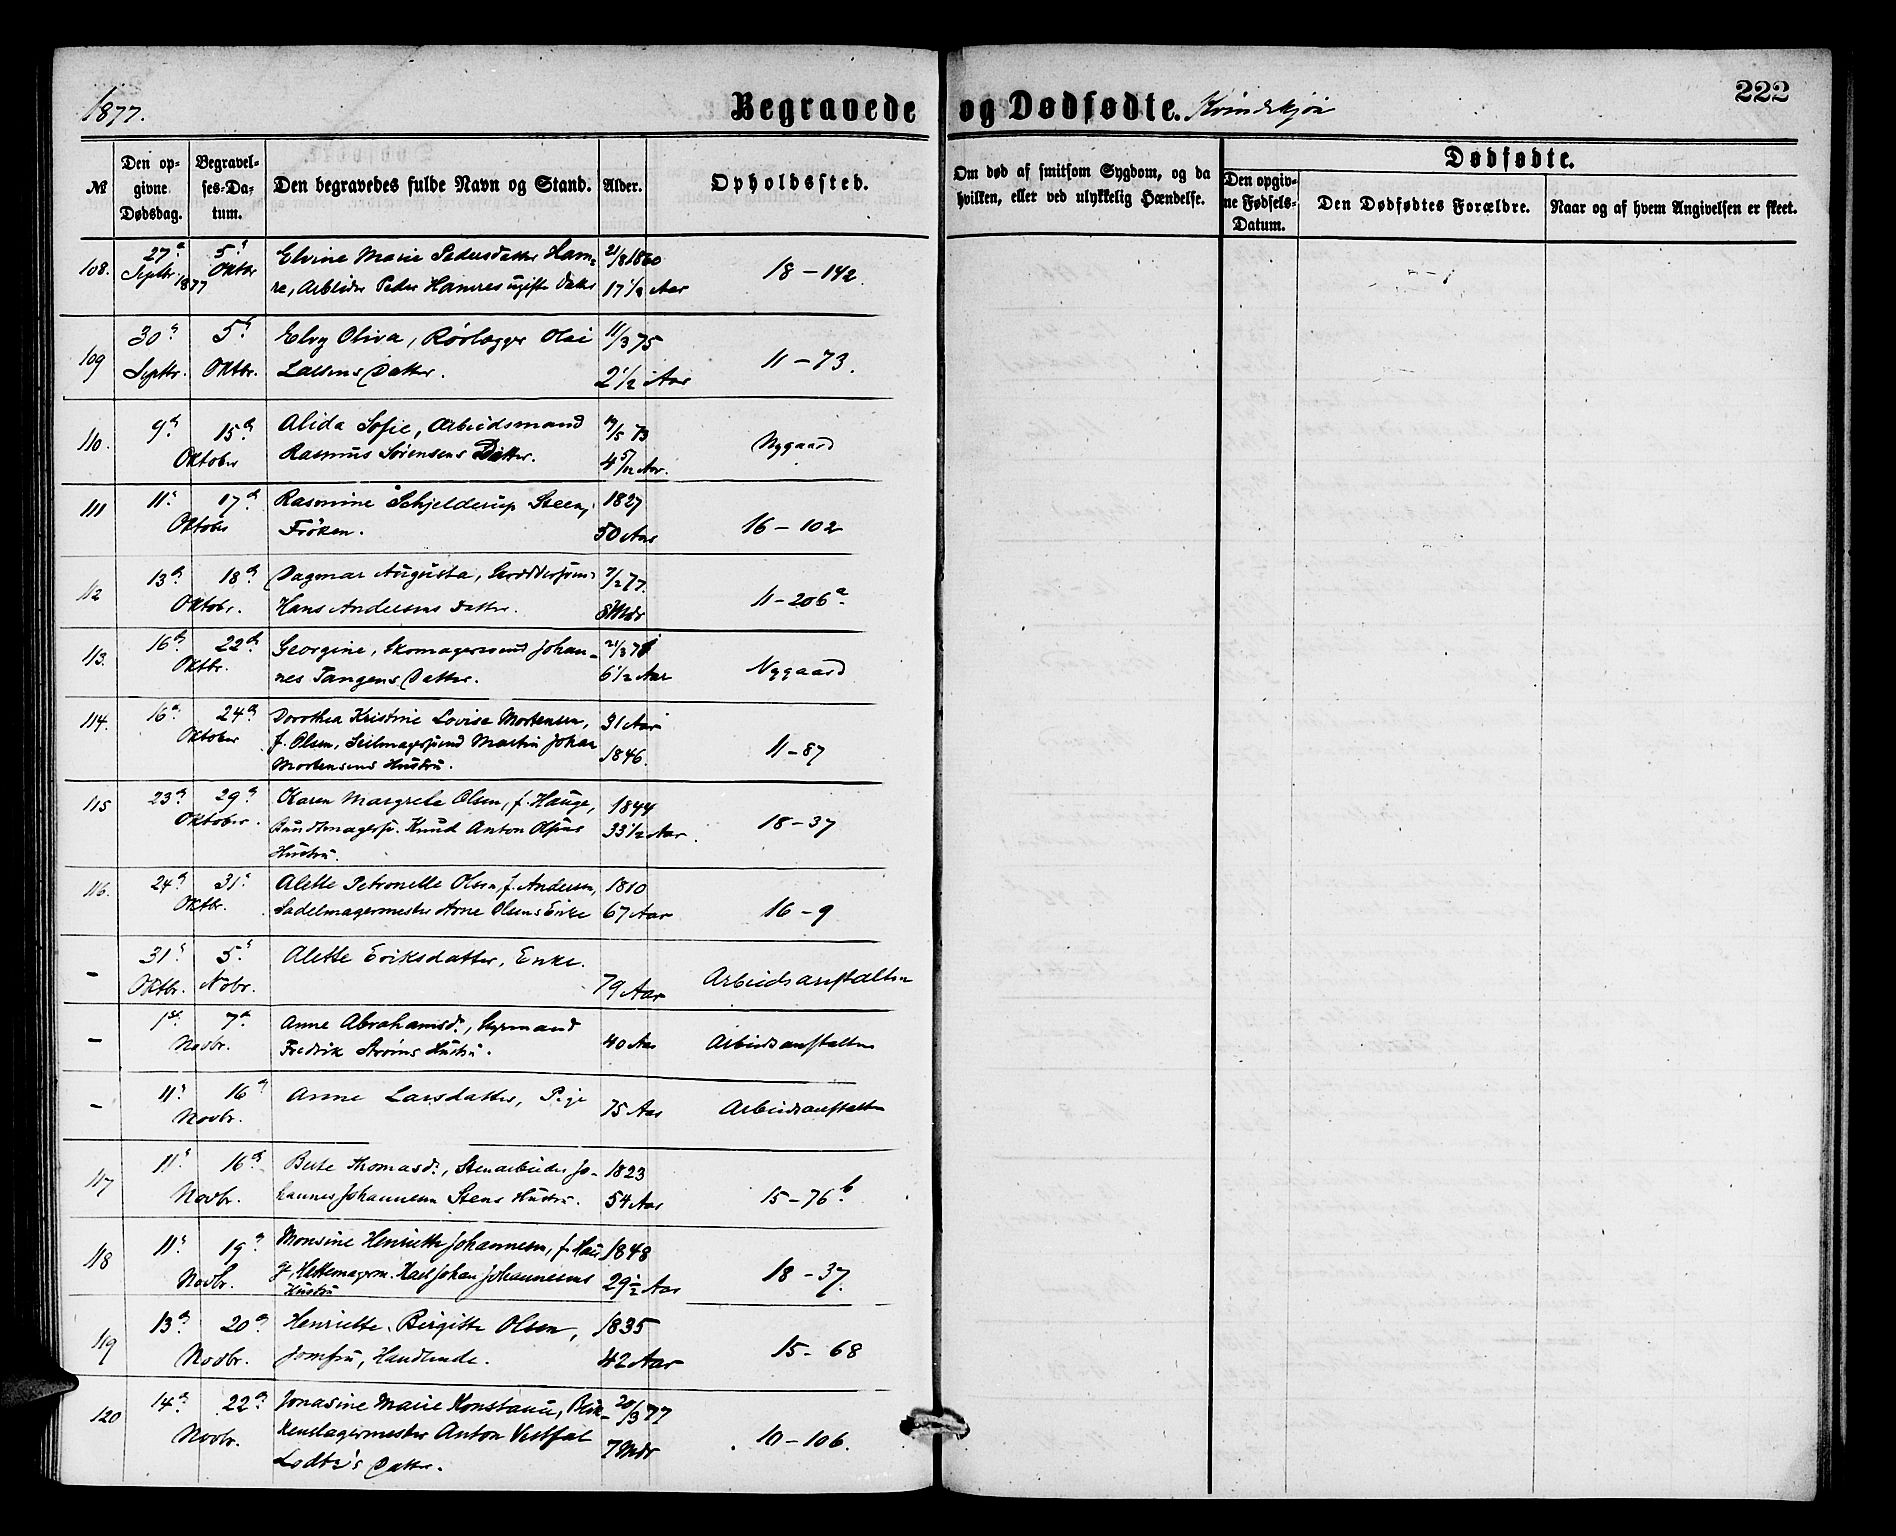 1877.
Begravede og Dødfødte. Kvindekjøn
222
№
Den opgivne Dødsdag.
Begravelses-Datum.
Den begravedes fulde Navn og Stand.
Alder.
Opholdssted.
Om død af smitsom Sygdom, og da hvilken, eller ved ulykkelig Hændelse.
Dødfødte.
Den opgivne Fødsels-Datum.
Den Dødfødtes Forældre.
Naar og af hvem Angivelsen er skeet.
108. 27de Septbr. 1877 5te Oktbr Elvine Marie Pedersdatter Ham-
re, Arbeider Peder Hamres ugifte Datter 21/8 1860 17 Aar 18 – 142.
109 30te Septbr. 5te Oktbr. Elvy Oliva, Rørlægger Olai
Larsens Datter. 11/3 75 2 1/2 Aar 11 – 73.
110. 9de 15de Oktober Alida Sofie, Arbeidsmand
Rasmus Sørensens Datter. /5 73 4 5/12 Aar. Nygaard
111 11te 17de Oktober Rasmine Schjelderup Steen,
Frøken. 1827 50 Aar 16 – 102
112 13de 18de Oktobr. Dagmar Augusta,
Hans Andersens Datter. 7/2 77. 8 Mdr 11 – 206a.
113. 16de 22de Oktbr. Georgine, Skomagersvend Johan-
nes Tangens Datter. 21/3 71 6 1/2 Aar Nygaard
114. 16de 24de Oktober Dorothea Kristine Lovise Mortensen,
f. Olsen, Seilmagersvend Martin Johan
Mortensens Hustru. 31 Aar 1846. 11 – 87
115 23de 29de Oktober. Karen Margrete Olsen, f. Hauge,
Bundtmagersv. Knud Anton Olsens
Hustru. 1844 33 1/2 Aar. 18 – 37
116. 24de 31te Oktbr. Alette Petronelle Olsen, f. Andersen,
Sadelmagermester Arne Olsens Enke 1810 67 Aar 16 – 9
– 31te Oktbr. 5te Nobr. Alette Eriksdatter, Enke. 79 Aar Arbeidsanstalten
– 1ste 7de Novbr. Anne Abrahamsd., Styrmand
Fredrik Strøms Hustru. 40 Aar Arbeidsanstalten
– 11te 16de Novbr. Anne Larsdatter, Pige 75 Aar Arbeidsanstalten
117 11te 16de Novbr. Berte Thomasd., Stenarbeider Jo-
hannes Johannesen Stens Hustru. 1823 54 Aar 15 – 76b
118 11te 19de Novbr. Monsine Henriette Johannesen, f. Hau-
ge, Hattemagerm. Karl Johan Johannesens
Hustru 1848 29 1/2 Aar 18 – 37.
119 13de 20de Novbr. Henriette Birgitte Olsen,
Jomfru, Handlende. 1835 42 Aar 15 – 68
120 14de 22de Novbr. Jonasine Marie Konstance, Blik-
kenslagermester Anton Vestfal
Lodtz's Datter. 20/3 77 7 Mdr 10 – 106.